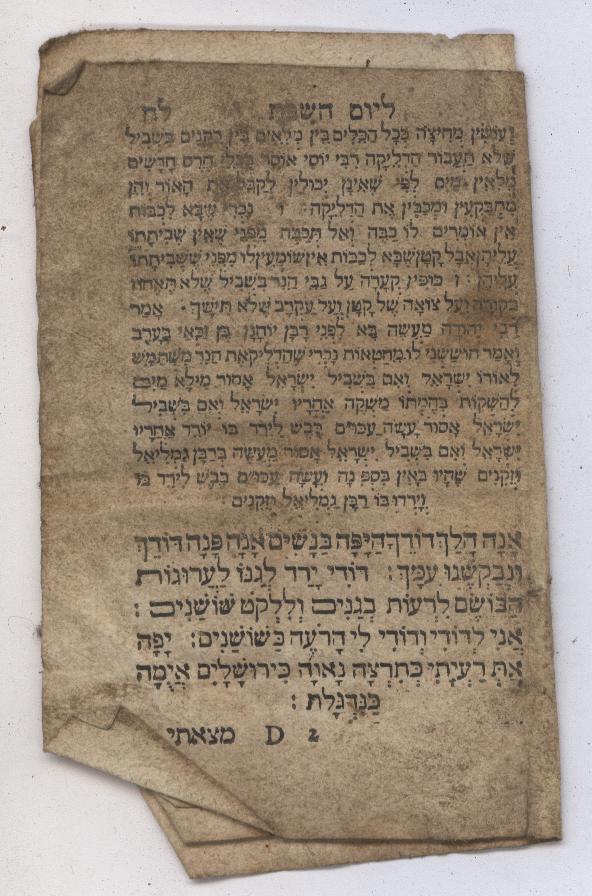 ליום השבת לח
וְעוֹשִׂין מְחִיצָה בְּכָל הַכֵּלִים בֵּין מְלֵאִים בֵּין רֵקָנִים בִּשְׁבִיל
שֶׁלֹּא תַּעֲבוֹר הַדְּלֵיקָה רַבִּי יוֹסֵי אוֹסֵר בִּכְלֵי חֶרֶס חֲדָשִׁים
מְלֵאִין מַיִם לְפִי שֶׁאֵינָן יְכוֹלִין לְקַבֵּל אֶת הָאוּר וְהֵן
מִתְבַּקְּעִין וּמְכַבִּין אֶת הַדְּלֵיקָה: ו נָכְרִי שֶׁבָּא לְכַבּוֹת
אֵין אוֹמְרִים לוֹ כַּבֵּה וְאַל תְּכַבֶּה מִפְּנֵי שֶׁאֵין שְׁבִיתָתוֹ
עֲלֵיהֶן אֲבָל קָטָן שֶׁבָּא לְכַבּוֹת אֵין שׁוֹמְעִין לוֹ מִפְּנֵי שֶׁשְּׁבִיתָתוֹ
עֲלֵיהֶן: ז כּוֹפִין קְעָרָה עַל גַּבֵּי הַנֵּר בִּשְׁבִיל שֶׁלֹּא תֶּאֱחוֹז
בַּקּוֹרָה וְעַל צוֹאָה שֶׁל קָטָן וְעַל עַקְרָב שֶׁלֹּא תִּישַּׁךְ. אָמַר
רַבִּי יְהוּדָה מַעֲשֶׂה בָּא לִפְנֵי רַבָּן יוֹחָנָן בֶּן זַכַּאי בַּעֲרָב
וְאָמַר חוֹשְׁשַׁנִי לוֹ מֵחַטָּאות נָכְרִי שֶׁהִדְלִיק אֶת הַנֵּר מִשְׁתַּמֵּשׁ
לְאוֹרוֹ יִשְׂרָאֵל וְאִם בִּשְׁבִיל יִשְׂרָאֵל אָסוּר מִילֵּא מַיִם
לְהַשְׁקוֹת בְּהֶמְתּוֹ מַשְׁקֶה אַחֲרָיו יִשְׂרָאֵל וְאִם בִּשְׁבִיל
יִשְׂרָאֵל אָסוּר עָשָׂה עַכּוּ״ם כֶּבֶשׁ לֵירֵד בּוֹ יוֹרֵד אַחֲרָיו
יִשְׂרָאֵל וְאִם בִּשְׁבִיל יִשְׂרָאֵל אָסוּר מַעֲשֶׂה בְּרַבָּן גַּמְלִיאֵל
וּזְקֵנִים שֶׁהָיוּ בָּאִין בִּסְפִינָה וְעָשָׂה עַכּוּ״ם כֶּבֶשׁ לֵירֵד בּוֹ
וְיָרְדוּ בוֹ רַבָּן גַּמְלִיאֵל וּזְקֵנִים:
אָנָה הָלַךְ דּוֹדֵךְ הַיָּפָה בַּנָּשִׁים אָנָה פָּנָה דוֹדֵךְ
וּנְבַקְשֶׁנּוּ עִמָּךְ: דּוֹדִי יָרַד לְגַנּוֹ לַעֲרוּגוֹת
הַבּוֹשֶׂם לִרְעוֹת בַּגַּנִּים וְלִלְקֹט שׁוֹשַׁנִּים:
אֲנִי לְדוֹדִי וְדוֹדִי לִי הָרֹעֶה בַּשּׁוֹשַׁנִּים: יָפָה
אַתְּ רַעְיָתִי כְּתִרְצָה נָאוָה כִּירוּשָׁלָיִם אֲיֻמָּה
כַּנִּדְגָּלוֹת:
D 2 מצאתי